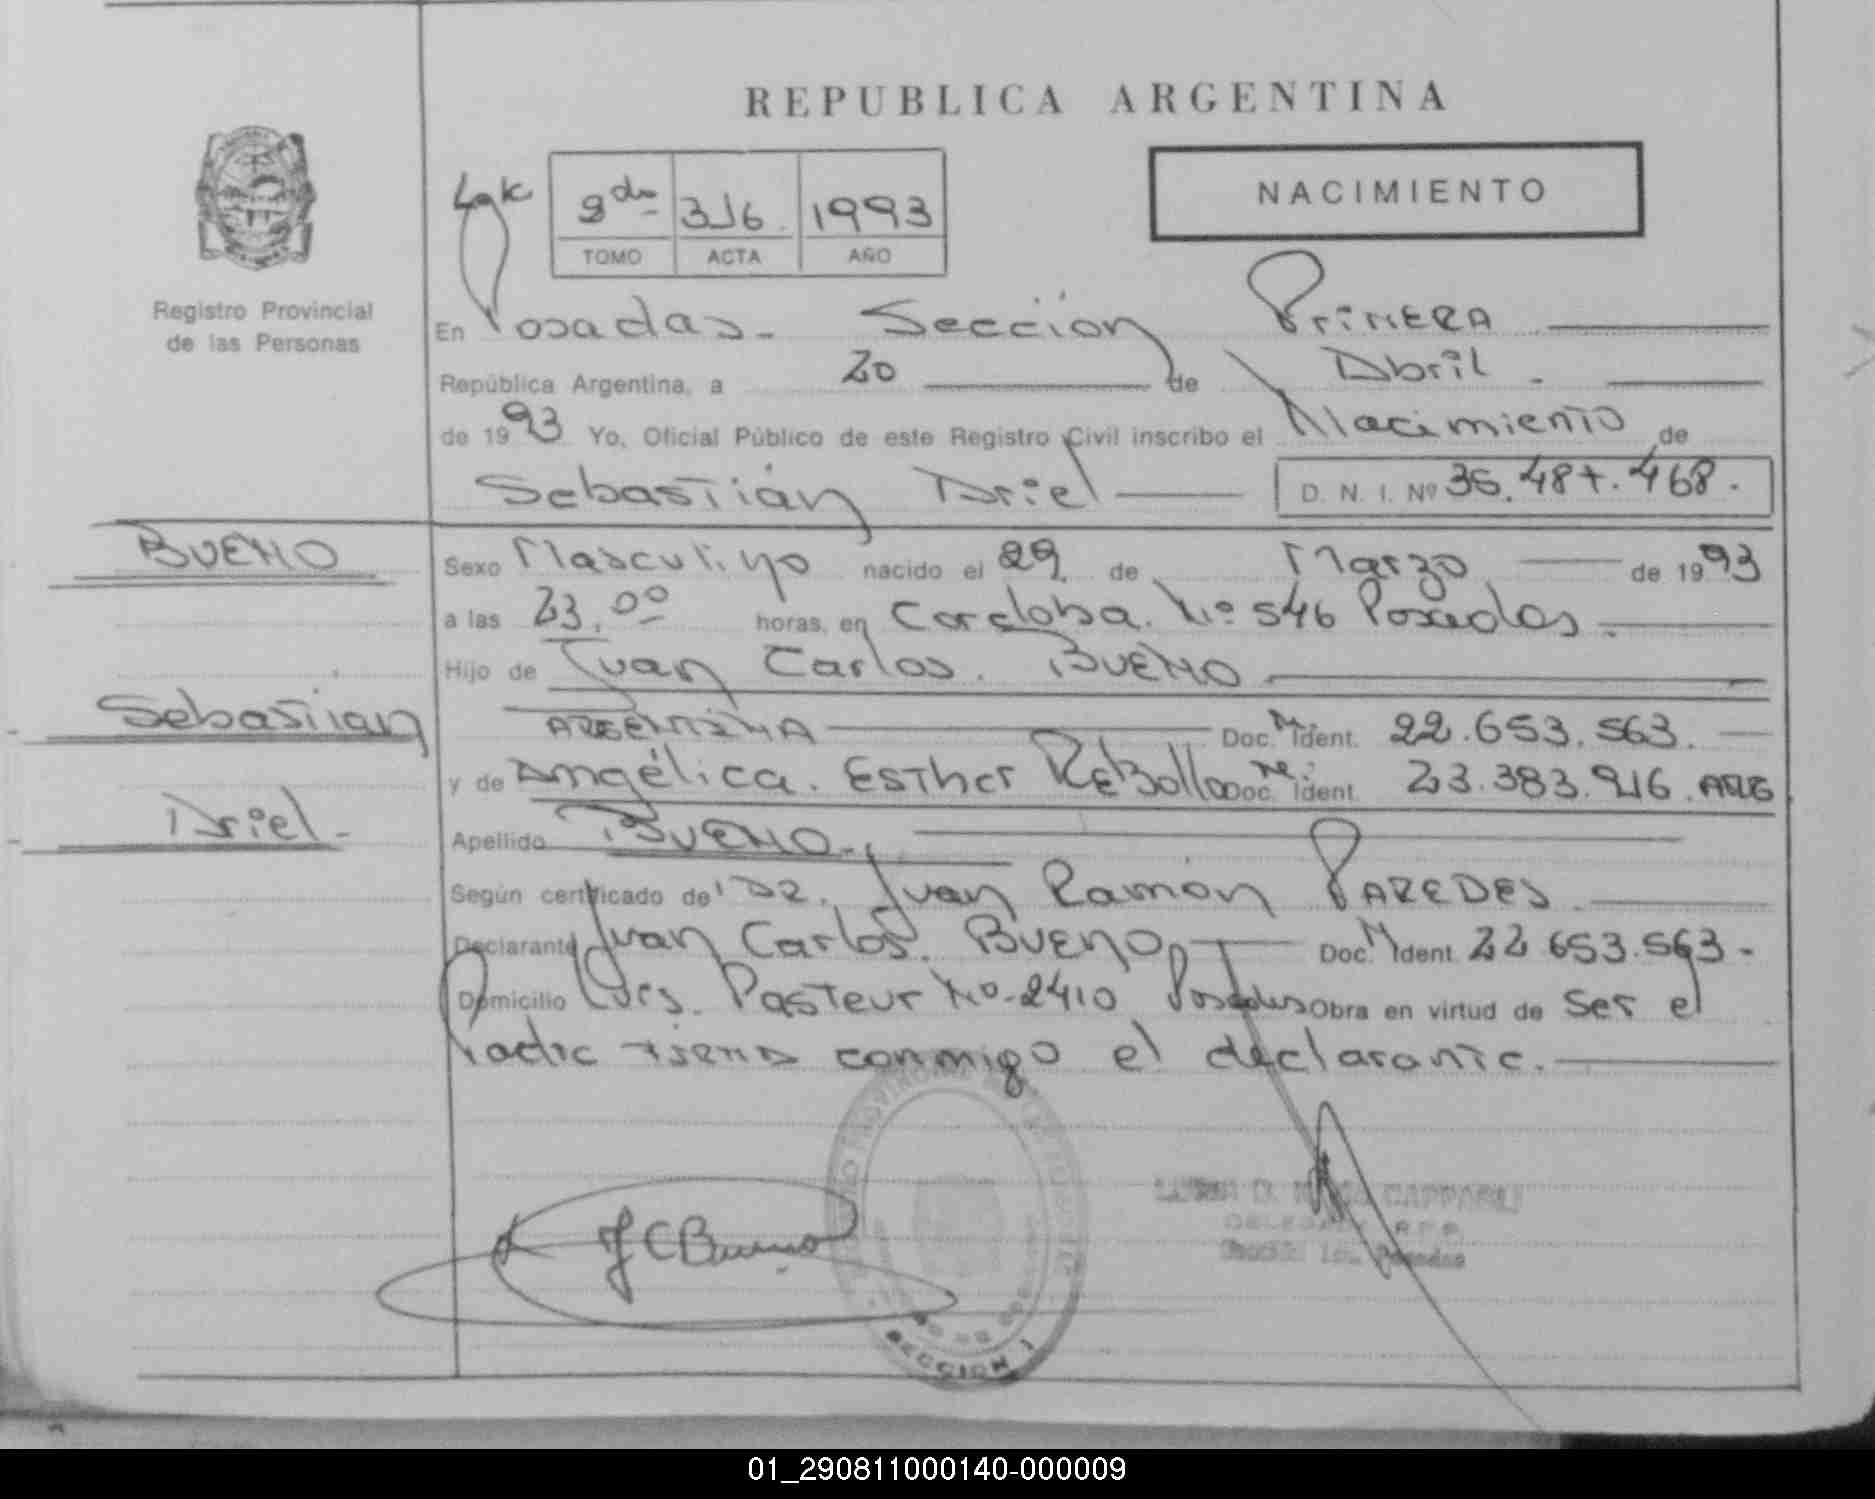 REPUBLICA ARGENTINA
NACIMIENTO
2do 316 1993
TOMO ACTA AÑO
Registro Provincial
de las Personas
En Posadas - Sección PriMERA
República Argentina, a 20 de Abril
de 1993 Yo, Oficial Público de este Registro Civil inscribo el Nacimiento de
Sebastián Ariel D. N. I. Nº 36.487.468.
BUENO
Sexo Masculino nacido el 29 de Marzo de 1993
a las 23,00 horas, en Cordoba. Nº 546 Posadas.
Hijo de Juan Carlos. BUENO
Sebastian
ARGENTINA Doc. M. Ident. 22.653.563.
y de Angélica. Esther REBollo Doc. Ident. 23.383.216. ARG
Ariel -
Apellido BUENO.-
Según certificado de DR. Juan Ramón PAREDES.
Declarante Juan Carlos. BUENO Doc. M Ident. 22 653.563 -
Domicilio Luis. Pasteur No - 2410 Posadas Obra en virtud de Ser el
Padre conmigo el declarante.
JCBueno
DELEGADA R.P.P.
Posadas
SECCION 1
01_290811000140-000009